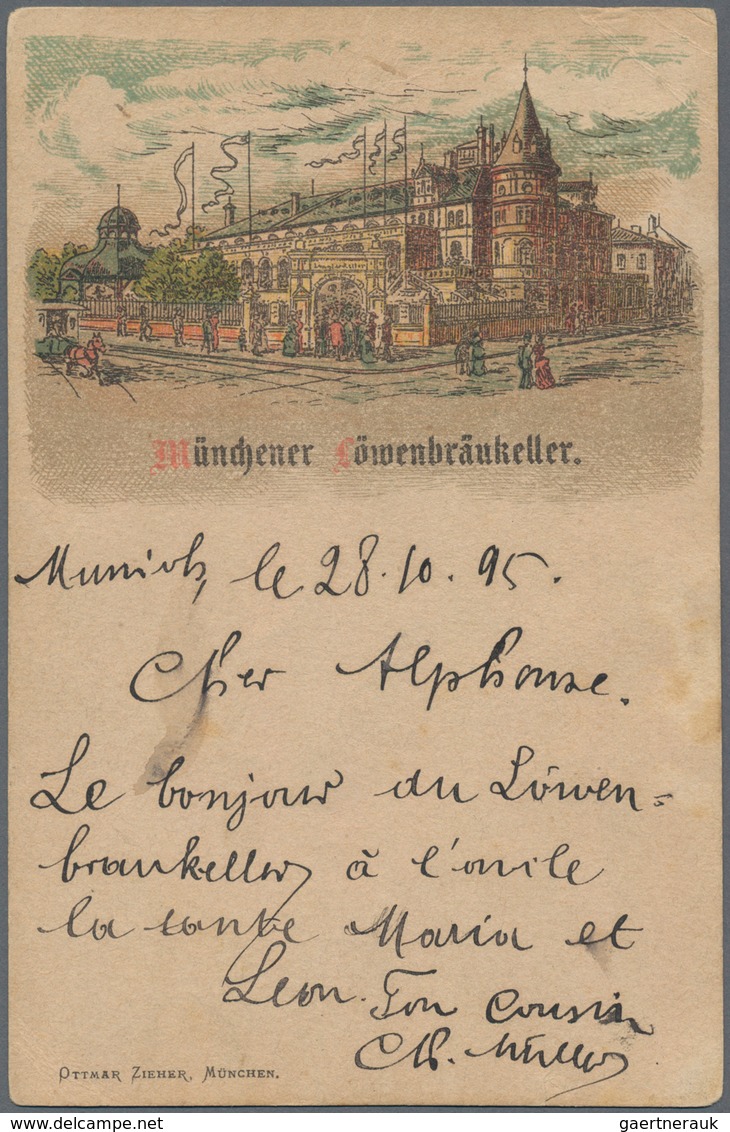 Münchener Löwenbräukeller.
Munich, le 28.10.95.
Cher Alphonse.
Le bonjour du Löwen=
braukeller à l'oncle
la tante Maria et
Leon. Ton cousin
Ch. Müller
OTTMAR ZIEHER, MÜNCHEN.
© Delcampe.net
gaertnerauk